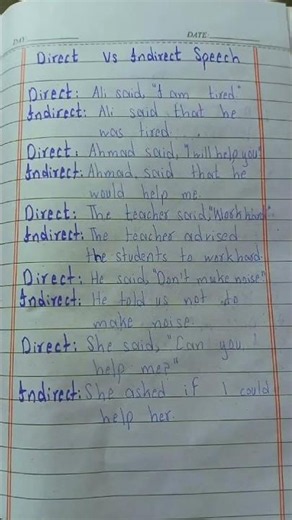 DAY
DATE:
Direct Vs Indirect Speech
Direct: Ali said, "I am tired"
Indirect: Ali said that he
was tired...
Direct: Ahmad said, "I will help you"
Indirect: Ahmad, said that he
would help me.
Direct: The teacher said, "Work hard"
Indirect: The teacher advised
the students to work hard.
Direct: He said, "Don't make noise"
Indirect: He told us not to
make noise.
Direct: She said, "Can you
help me?"
Indirect: She asked if I could
help her.